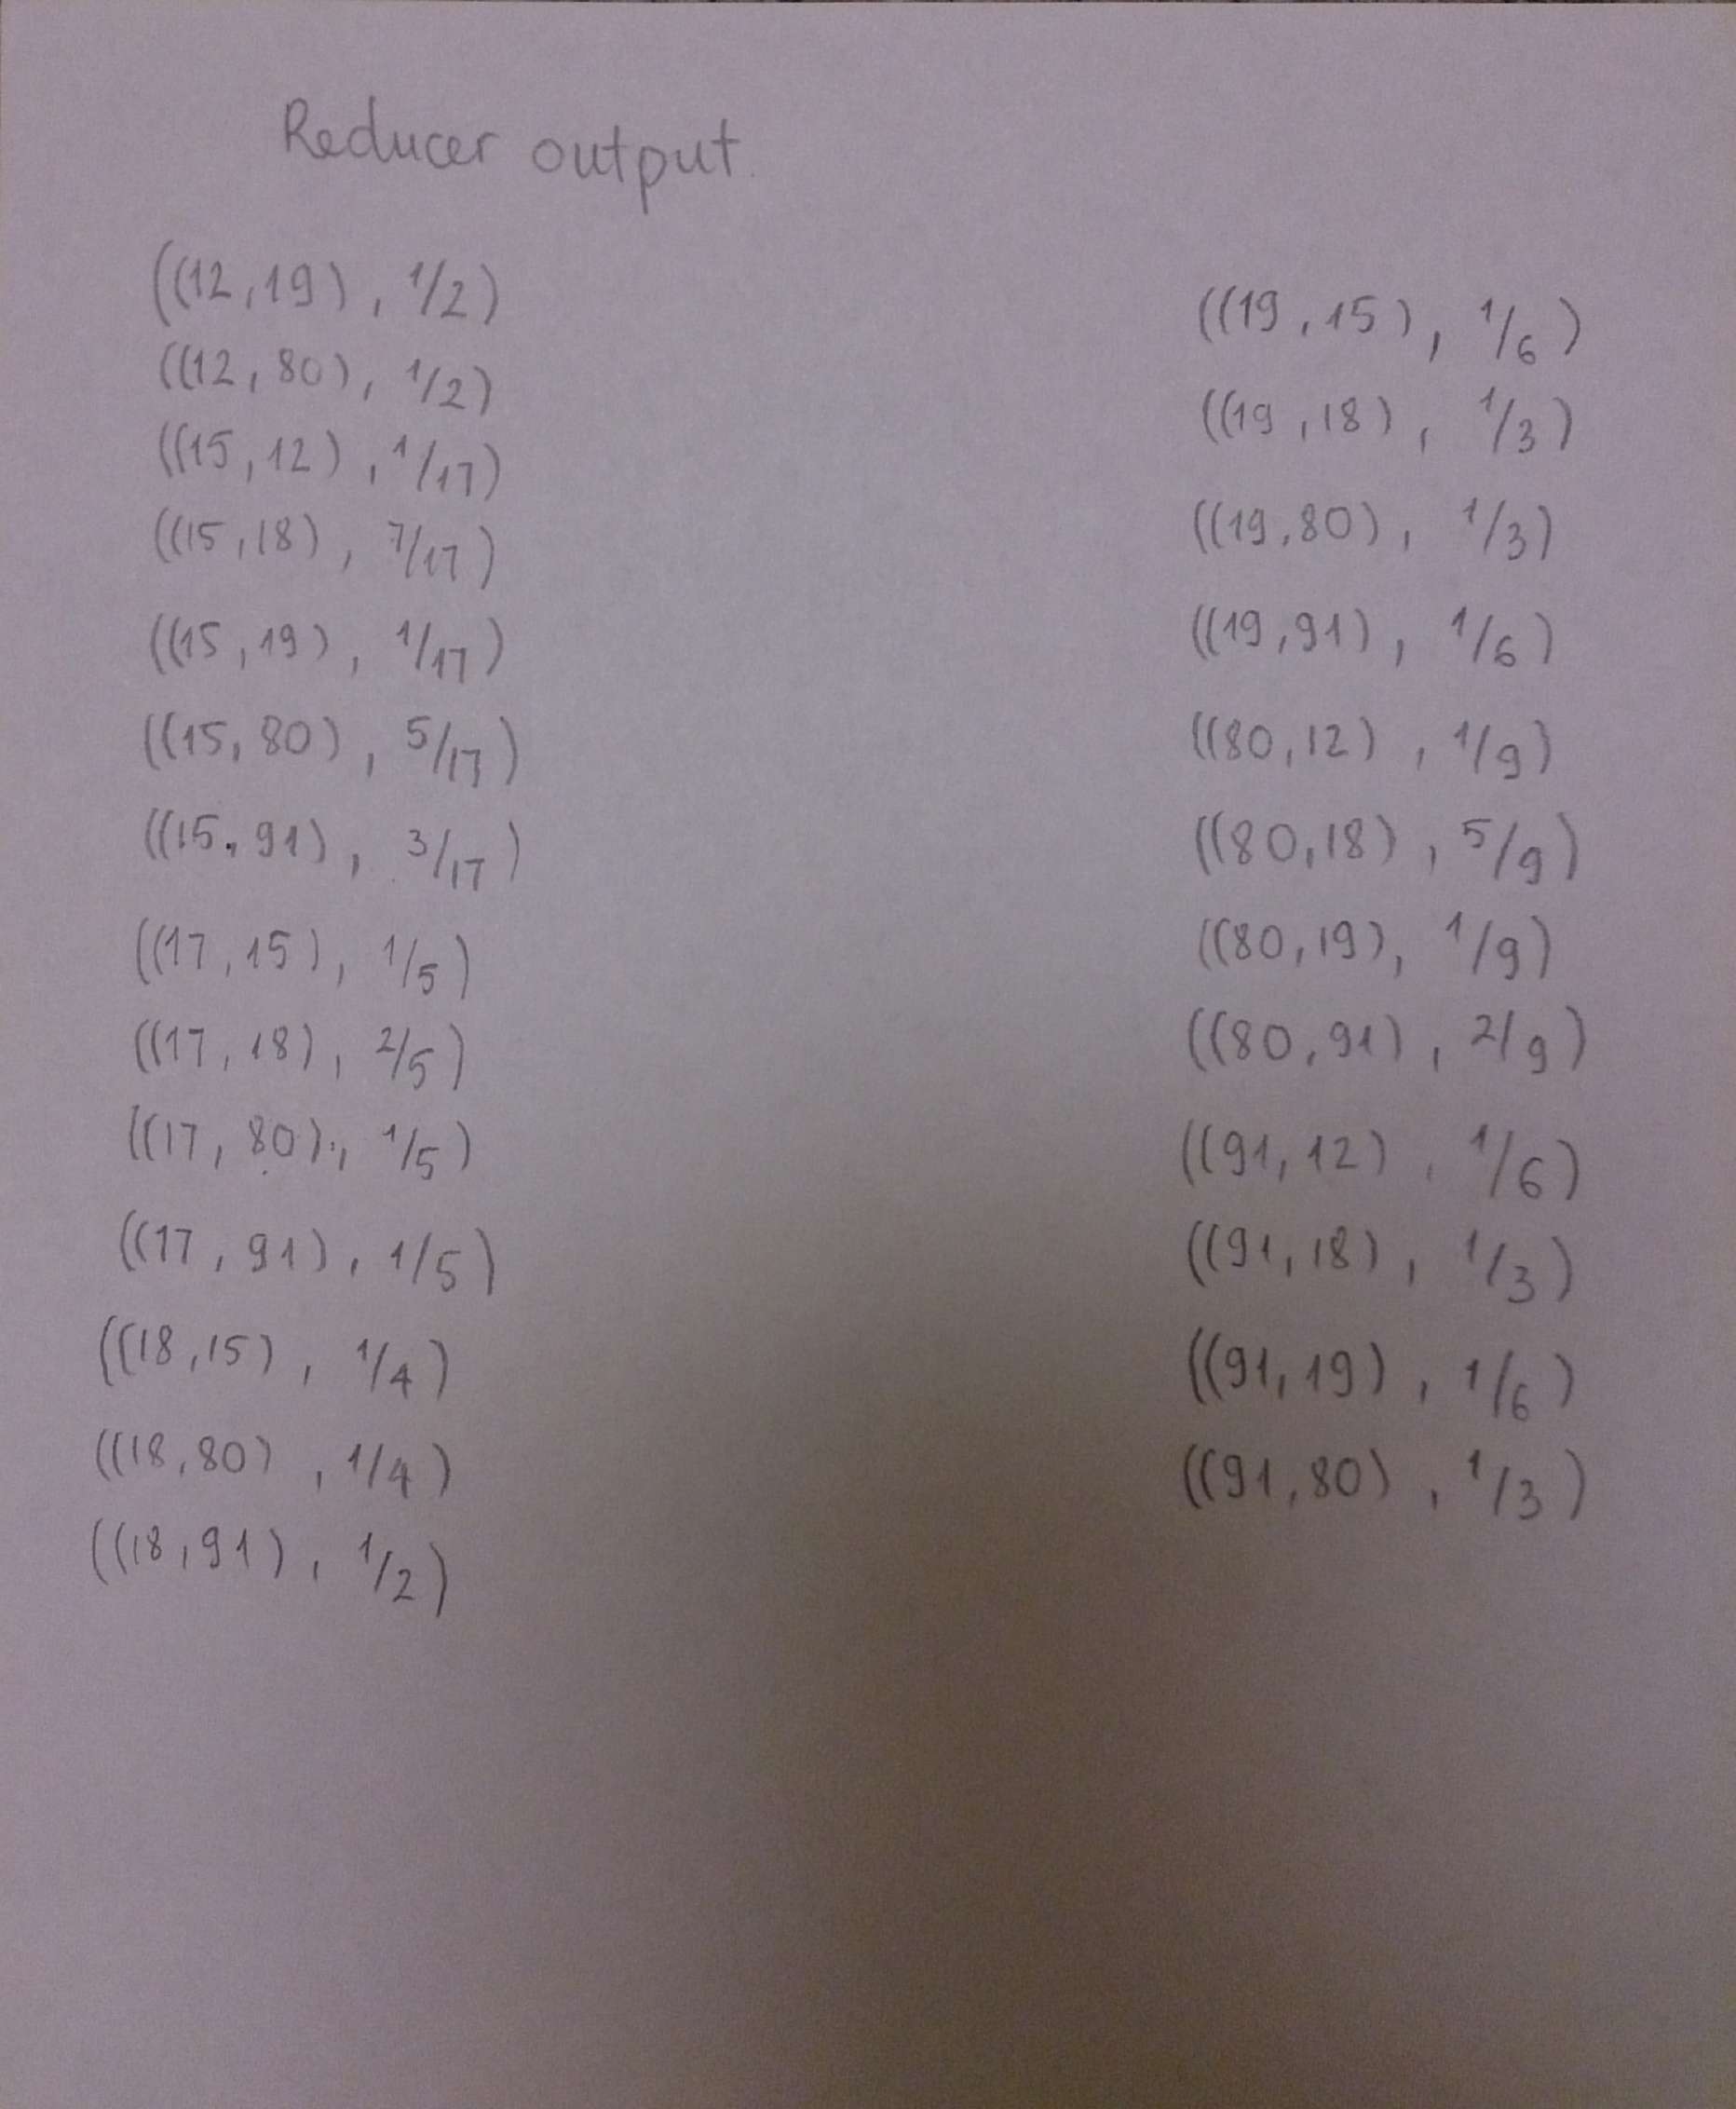 Reducer output
((12,19), 1/2)
((12,80), 1/2)
((15,12), 1/17)
((15,18), 7/17)
((15,19), 1/17)
((15,80), 5/17)
((15,91), 3/17)
((17,15), 1/5)
((17,18), 2/5)
((17,80), 1/5)
((17,91), 1/5)
((18,15), 1/4)
((18,80), 1/4)
((18,91), 1/2)
((19,15), 1/6)
((19,18), 1/3)
((19,80), 1/3)
((19,91), 1/6)
((80,12), 1/9)
((80,18), 5/9)
((80,19), 1/9)
((80,91), 2/9)
((91,12), 1/6)
((91,18), 1/3)
((91,19), 1/6)
((91,80), 1/3)